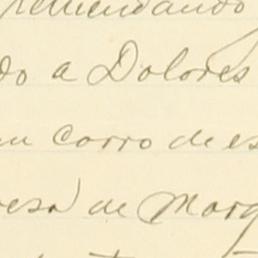 remendando
do a Dolores
un corro de es
esa) de Marg